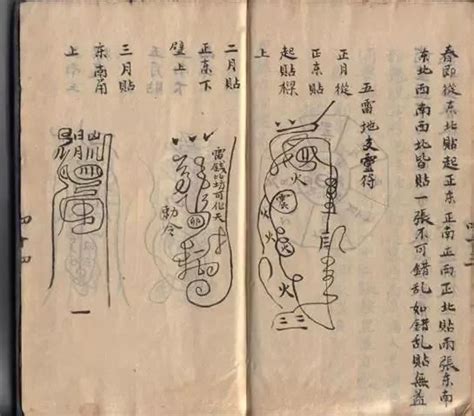 春即從東北貼起正東正南正西正北貼兩張東南
東北西南西北皆貼一張不可錯亂如錯亂貼無益
五雷地支靈符
正月從
正東貼
起貼樑
上
火
火
火
火
二月貼
正東下
壁上
勅令
三月貼
東南角
上
日月
一
四十四